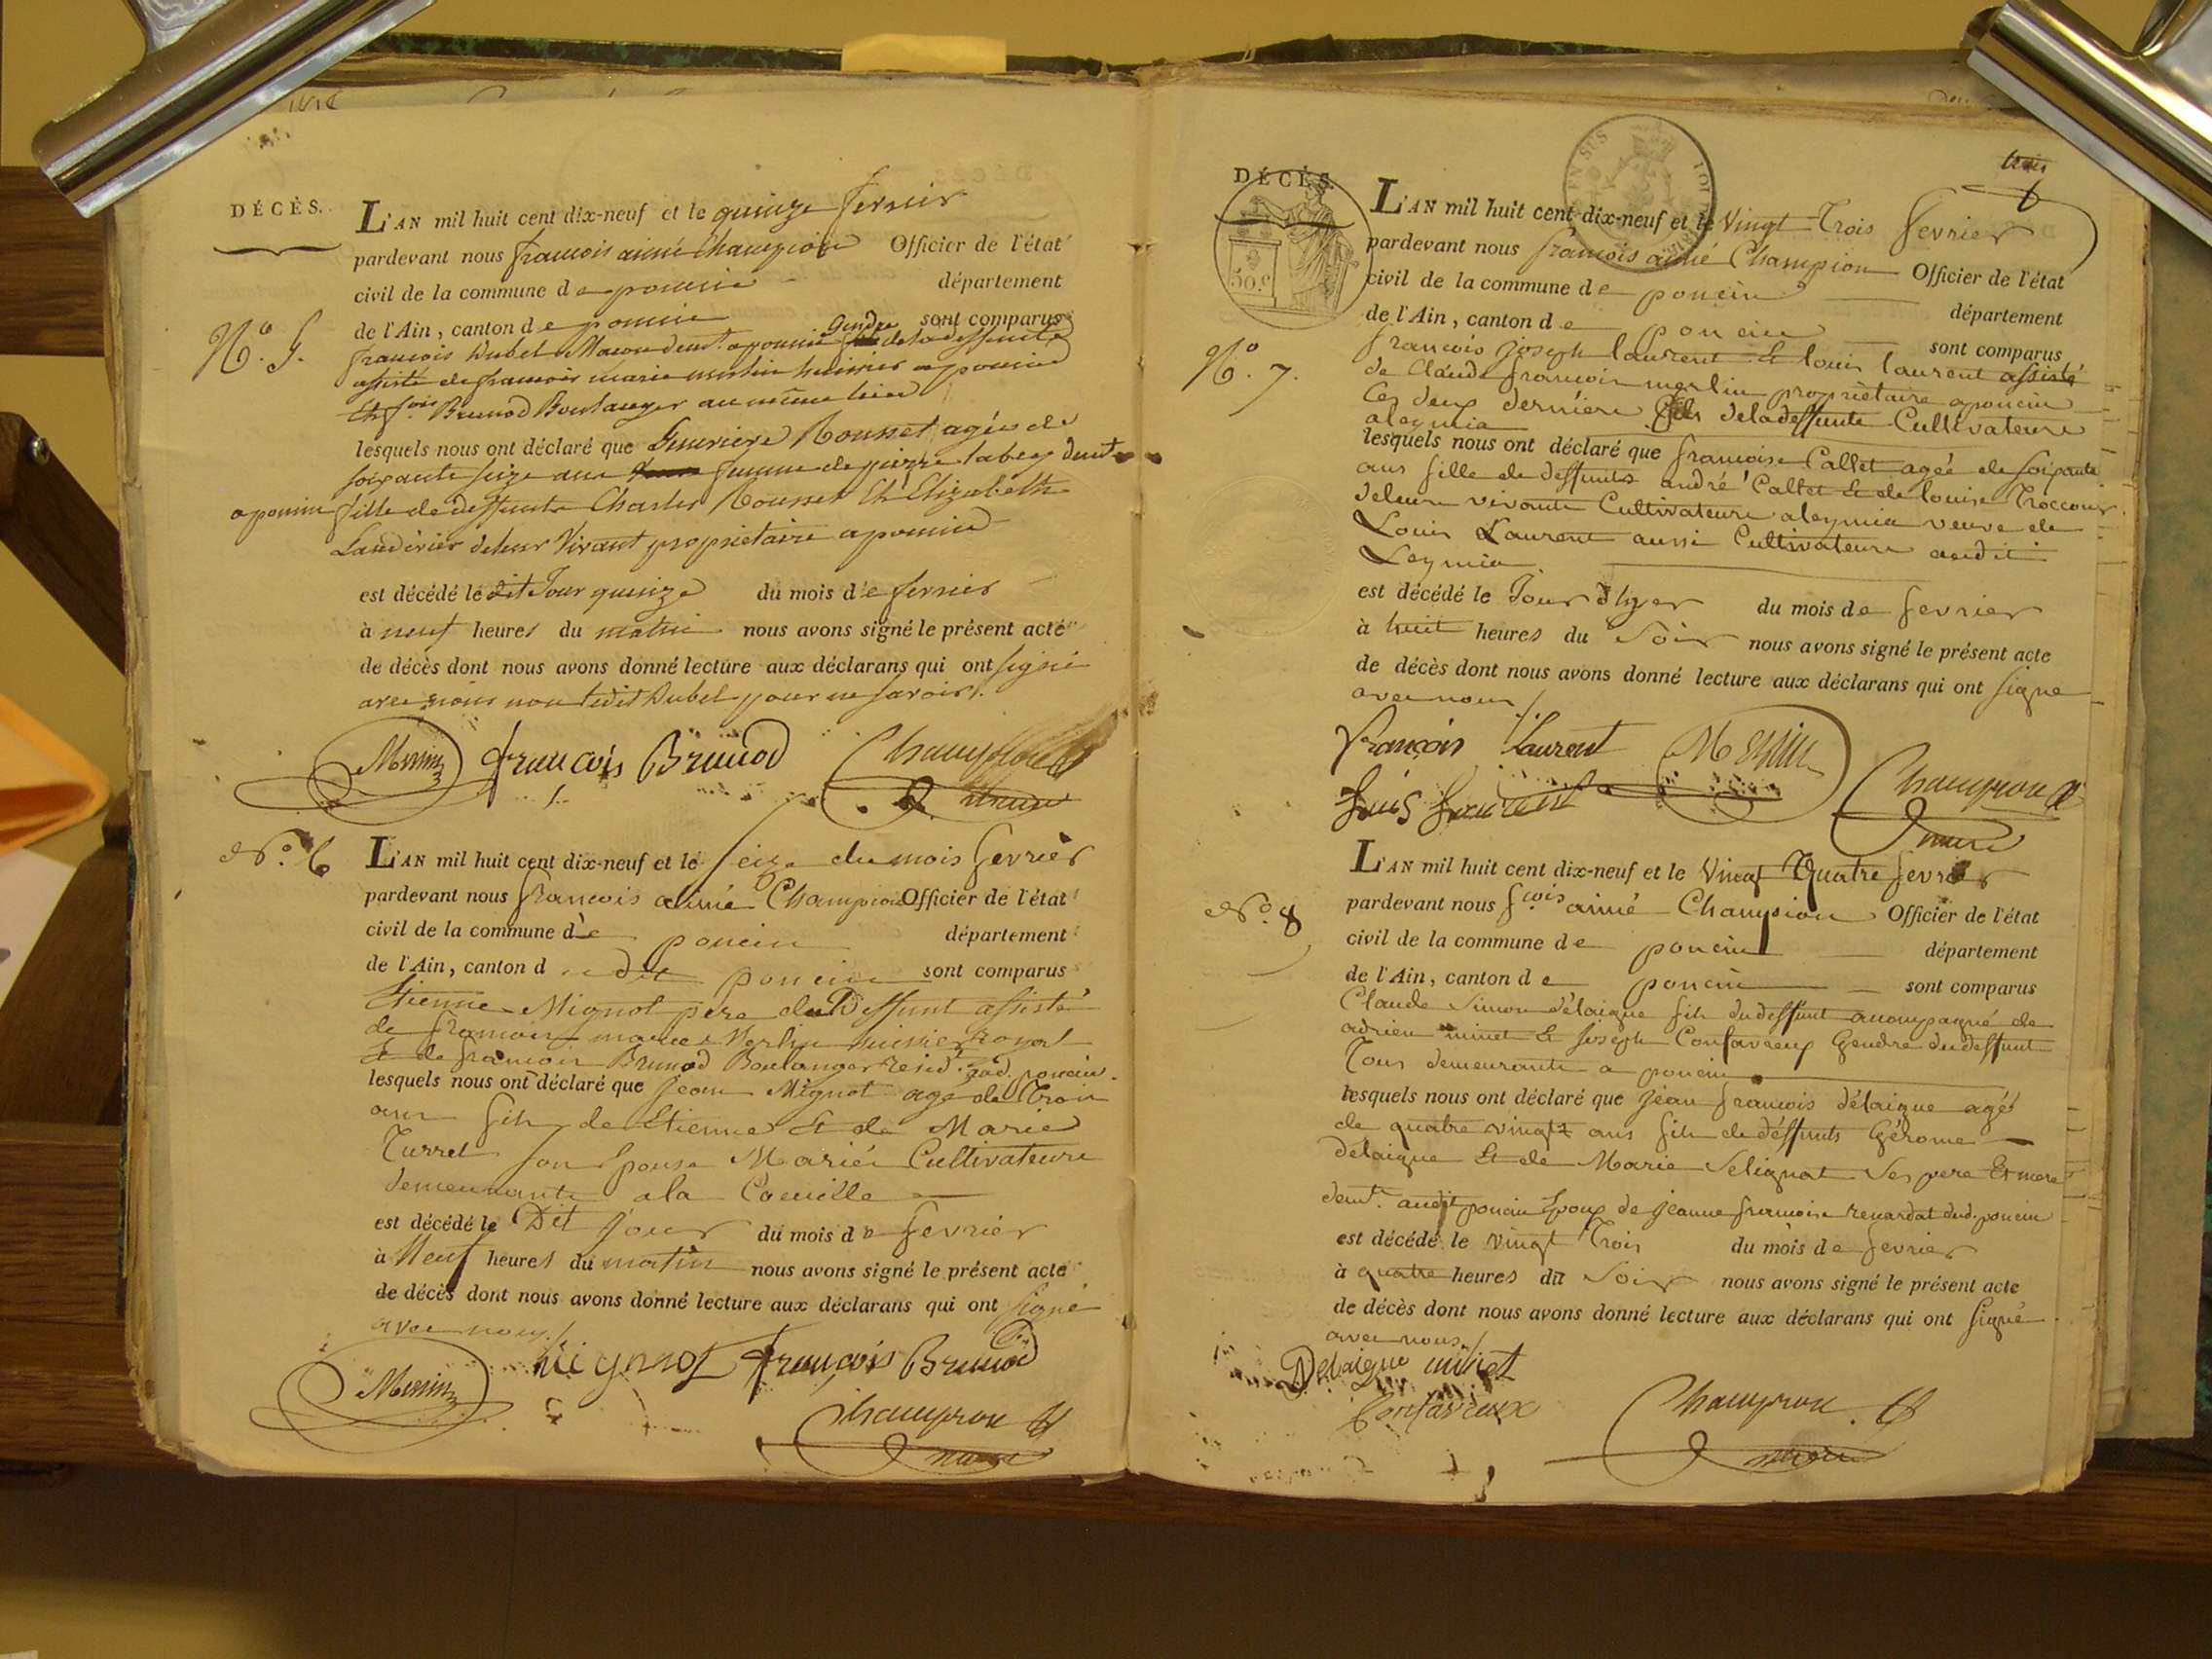 DÉCÈS.
L'AN mil huit cent dix-neuf et le quinze fevrier
pardevant nous françois aimé Champion Officier de l'état
civil de la commune de poncin département
de l'Ain, canton de poncin sont comparus
N.º 5.
françois Dubel Macon demt. a poncin gendre de la deffunte
assisté de françois marie merlin huissier a poncin
Et fois Brunod Boulanger au même lieu
lesquels nous ont déclaré que Genevieve Rousset agée de
soixante seize ans femme de pierre labey demt.
a poncin fille de deffunts Charles Rousset Et Elizabeth
deleur Vivant proprietaire a poncin
est décédé le dit Jour quinze du mois de fevrier
à neuf heures du matin nous avons signé le présent acte
de décès dont nous avons donné lecture aux déclarans qui ont signé
avec nous non ledit Dubel pour ne savoir.
Merlin françois Brunod Champion
maire
N.º 6
L'AN mil huit cent dix-neuf et le seize du mois fevrier
pardevant nous françois aimé Champion Officier de l'état
civil de la commune de poncin département
de l'Ain, canton du dit poncin sont comparus
Etienne Mignot pere du Deffunt assisté
de françois marie Merlin huissier royal
Et de françois Brunod Boulanger resid. aud. poncin.
lesquels nous ont déclaré que jean Mignot agé de Trois
ans fils de Etienne Et de Marie
Turrel son Epouse Mariés Cultivateurs
demeurants a la
est décédé le Dit jour du mois de fevrier
à Neuf heures du matin nous avons signé le présent acte
de décès dont nous avons donné lecture aux déclarans qui ont signé
avec nous./
Merlin Mignot françois Brunod
Champion
maire
trois
DÉCÈS.
50.c
L'AN mil huit cent dix-neuf et le Vingt Trois fevrier
pardevant nous françois aimé Champion Officier de l'état
civil de la commune de poncin département
de l'Ain, canton de poncin sont comparus
N.º 7.
francois joseph laurent Et louis laurent assisté
de Claude francois merlin proprietaire a poncin
Ces deux derniere fils deladeffunte Cultivateurs
aleymia
lesquels nous ont déclaré que francoise Callet agée de soixante
ans fille de deffunts andré Callet Et de louise
deleur vivante Cultivateurs aleymia veuve de
Louis Laurent aussi Cultivateurs audit
Leymia
est décédé le Jour d'hyer du mois de fevrier
à huit heures du Soir nous avons signé le présent acte
de décès dont nous avons donné lecture aux déclarans qui ont signe
avec nous./
françois laurent Merlin
Louis Laurent Champion
maire
N.º 8
L'AN mil huit cent dix-neuf et le Vingt Quatre fevrier
pardevant nous fcois aimé Champion Officier de l'état
civil de la commune de poncin département
de l'Ain, canton de poncin sont comparus
Claude Simon délaigue fils dudeffunt accompagné de
adrien minet Et Joseph Confavreux Gendre dudeffunt
Tous demeurants a poncin
lesquels nous ont déclaré que jean francois délaigue agé
de quatre vingtz ans fils dedéffunts Gérome
delaigue Et de Marie Selignat Ses pere Et mere
demt. audit poncin Epoux de jeanne francoise renardat dud. poncin
est décédé le vingt Trois du mois de fevrier
à quatre heures du Soir nous avons signé le présent acte
de décès dont nous avons donné lecture aux déclarans qui ont signé
avec nous./
Delaigue minet
Confavreux Champion
maire